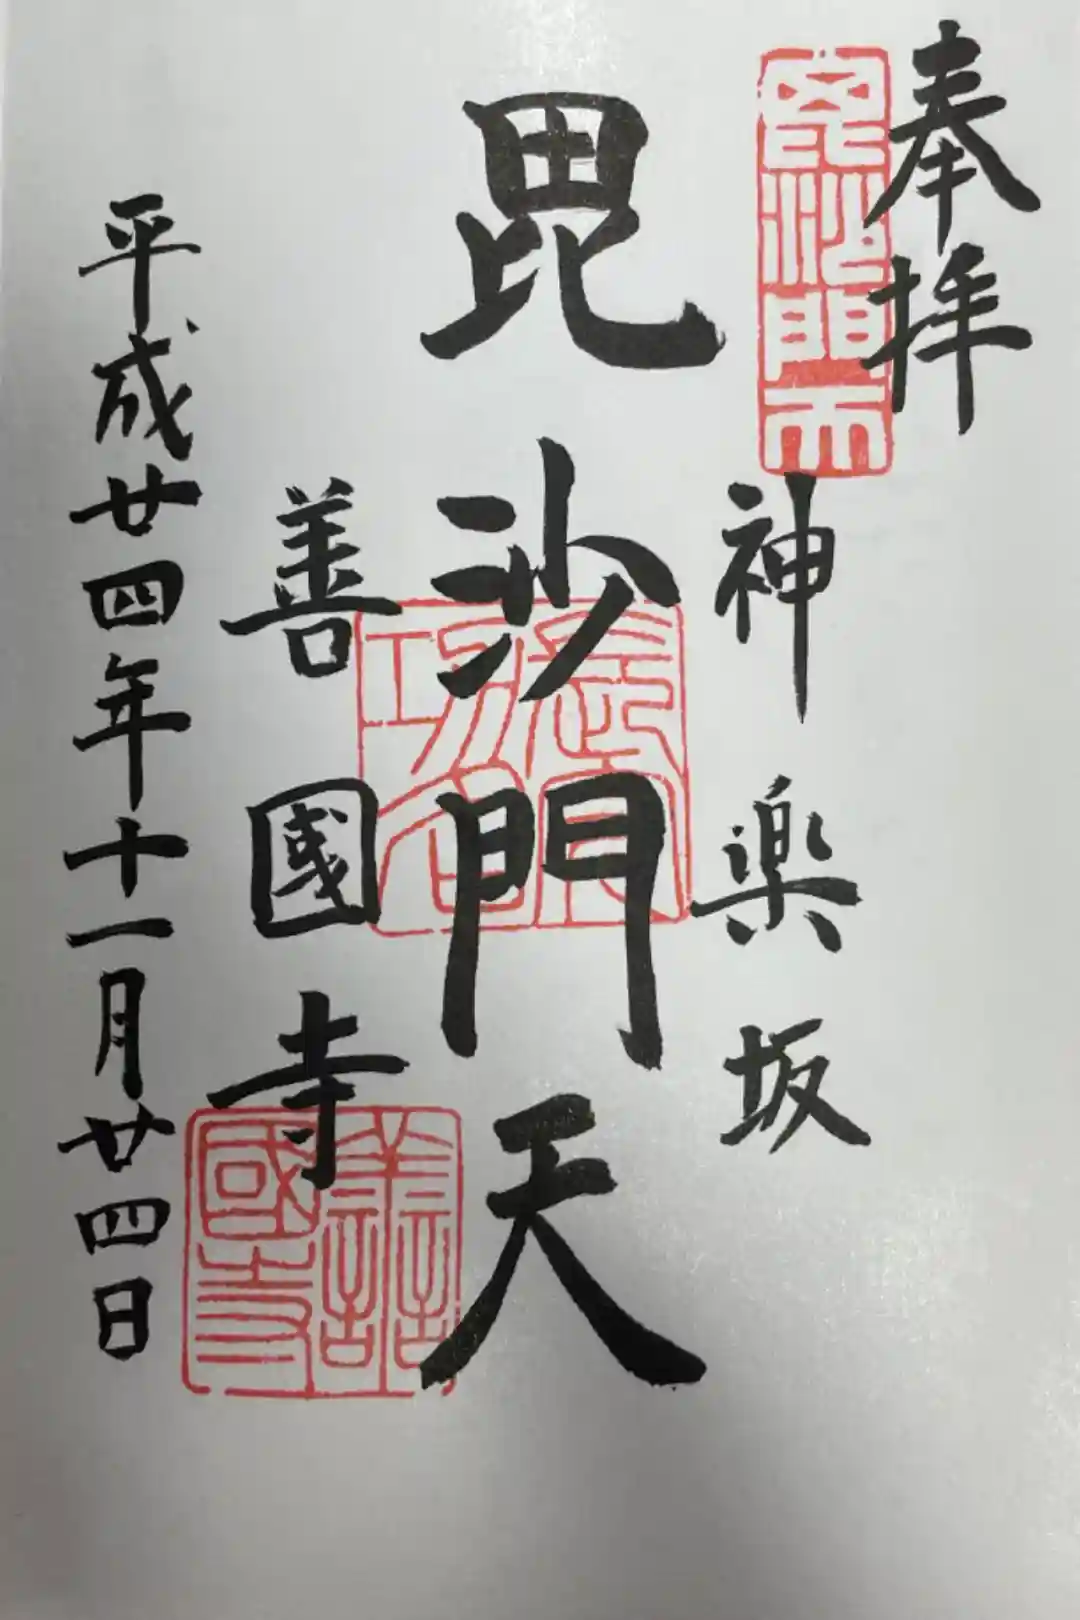 奉拝
毘沙門天
神楽坂
毘沙門天
善國寺
善國寺
平成廿四年十一月廿四日